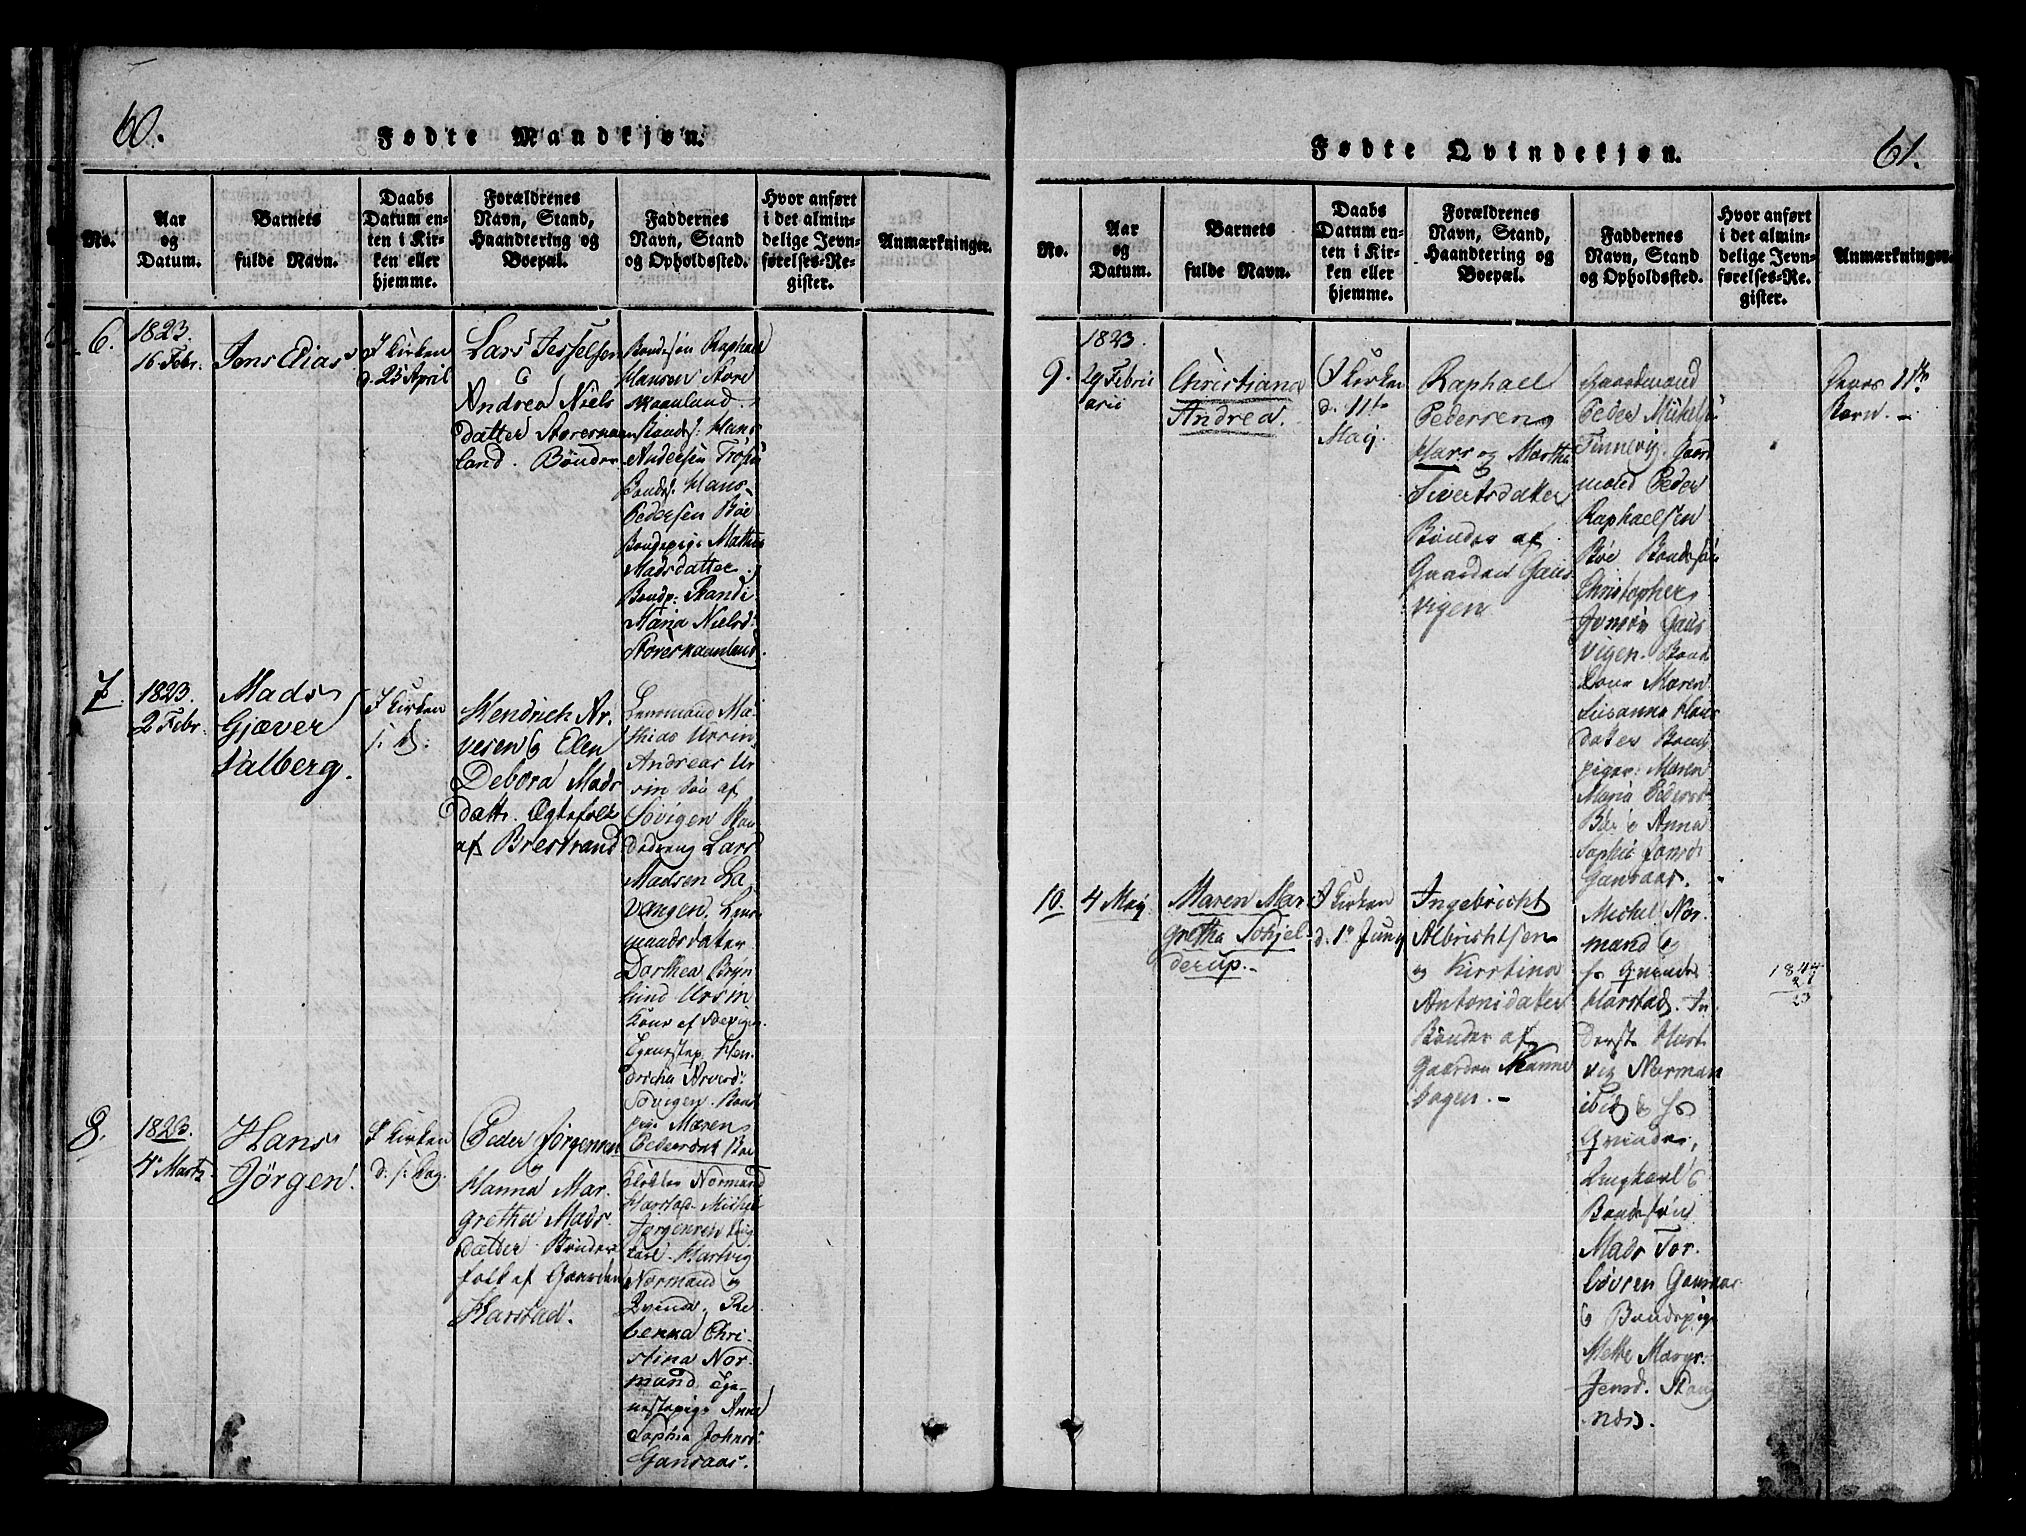 60.
Fødte Mandkjøn.
No.
Aar
og
Datum.
Barnets
fulde Navn.
Daabs
Datum en-
ten i Kir-
ken eller
hjemme.
Forældrenes
Navn, Stand,
Haandtering og
Boepæl.
Faddernes
Navn, Stand
og Opholdssted.
Hvor anført
i det almin-
delige Jevn-
førelses-Re-
gister.
Anmærkninger.
6.
1823.
16 Febr.
Jens Elias
I Kirken
d. 25 April
Lars Tesselsen
Andrea Niels
datter Storeskaan
land. Bønder
Bondesøn Raphael
Hansen Store
skaanland.
Bondes: Hans
Andersen
Bondes. Hans
Pedersen Bøe
Bondepige Mathea
Madsdatter
Bondp: Randi
Maria Nielsd:
Storeskaanland.
7.
1823.
2 Febr.
Mads
Gjæver
Valberg.
I Kirken
Hendrich Ar-
vesen og Elen
Debora Mads
datt. Egtefolk
af Brestrand
Lensmand Ma-
thias Ursin
Andreas Ur
sin søn af
Søvigen
Lars
Madsen La-
vangen. Lens
mandsdatter
Dorthea Bryn
hild Ursin
Kone af
Tjenestep. Hen-
dricha Arvesd:
Søvigen. Bond
pige Maren
Pedersdat Bøe
8.
1823.
4 Martz
Hans
Jörgen.
I Kirken
Peder Jørgensen
og
Hanna Mar-
gretha Mads
datter Bønder
folk af Gaarden
Harstad.
Normand
Harstad Michel
Jørgensen Ung
karl. Hartvig
Normand og
Qvinde, Re-
benna Chri-
stina Nor-
mand, Tje-
nestepige Anne
Sophia Johnsd:
Gansaas.
61.
Fødte Qvindekjøn.
No.
Aar
og
Datum.
Barnets
fulde Navn.
Daabs
Datum en-
ten i Kir-
ken eller
hjemme.
Forældrenes
Navn, Stand,
Haandtering og
Boepæl.
Faddernes
Navn, Stand
og Opholdssted.
Hvor anført
i det almin-
delige Jevn-
førelses-Re-
gister.
Anmærkninger.
9.
1823.
29 Febru
arii
Christiana
Andrea.
I Kirken
d. 11te
Maij.
Raphael
Pedersen
Hars og Martha
Sivertsdatter
Bønder af
Gaarden Gaus
vigen
Gaardmand
Peder Mikels:
Tennevg. Gaard
mand Peder
Raphaelsen
Bøe Bondesøn
Christopher
Jonsøn Gaus
vigen. Bond
Kone Maren
Susanna Hans
datter Bond
piger: Maren
Maria Pedersd
Bøe og Anna
Sophia Jonsd:
Gansaas.
11te
Barn.
10.
4 Maij
Maren Mar
gretha Tohjel-
derup.
I Kirken
d. 1te Junij
Ingebricht
Albrichtsen
og Kirstina
Antonidatter
Bønder af
Gaarden Kanne
bogen.
Michel Nor-
mand og
Qvinde
Harstad.
Hart
vig Norman
ibid og
Qvinde,
Ungkarl &
Bondesøn
Mads Tor-
børsen Gansaas
& Bondepige
Mette Margr.
Jensd. Stang
næs.
1844
21
23